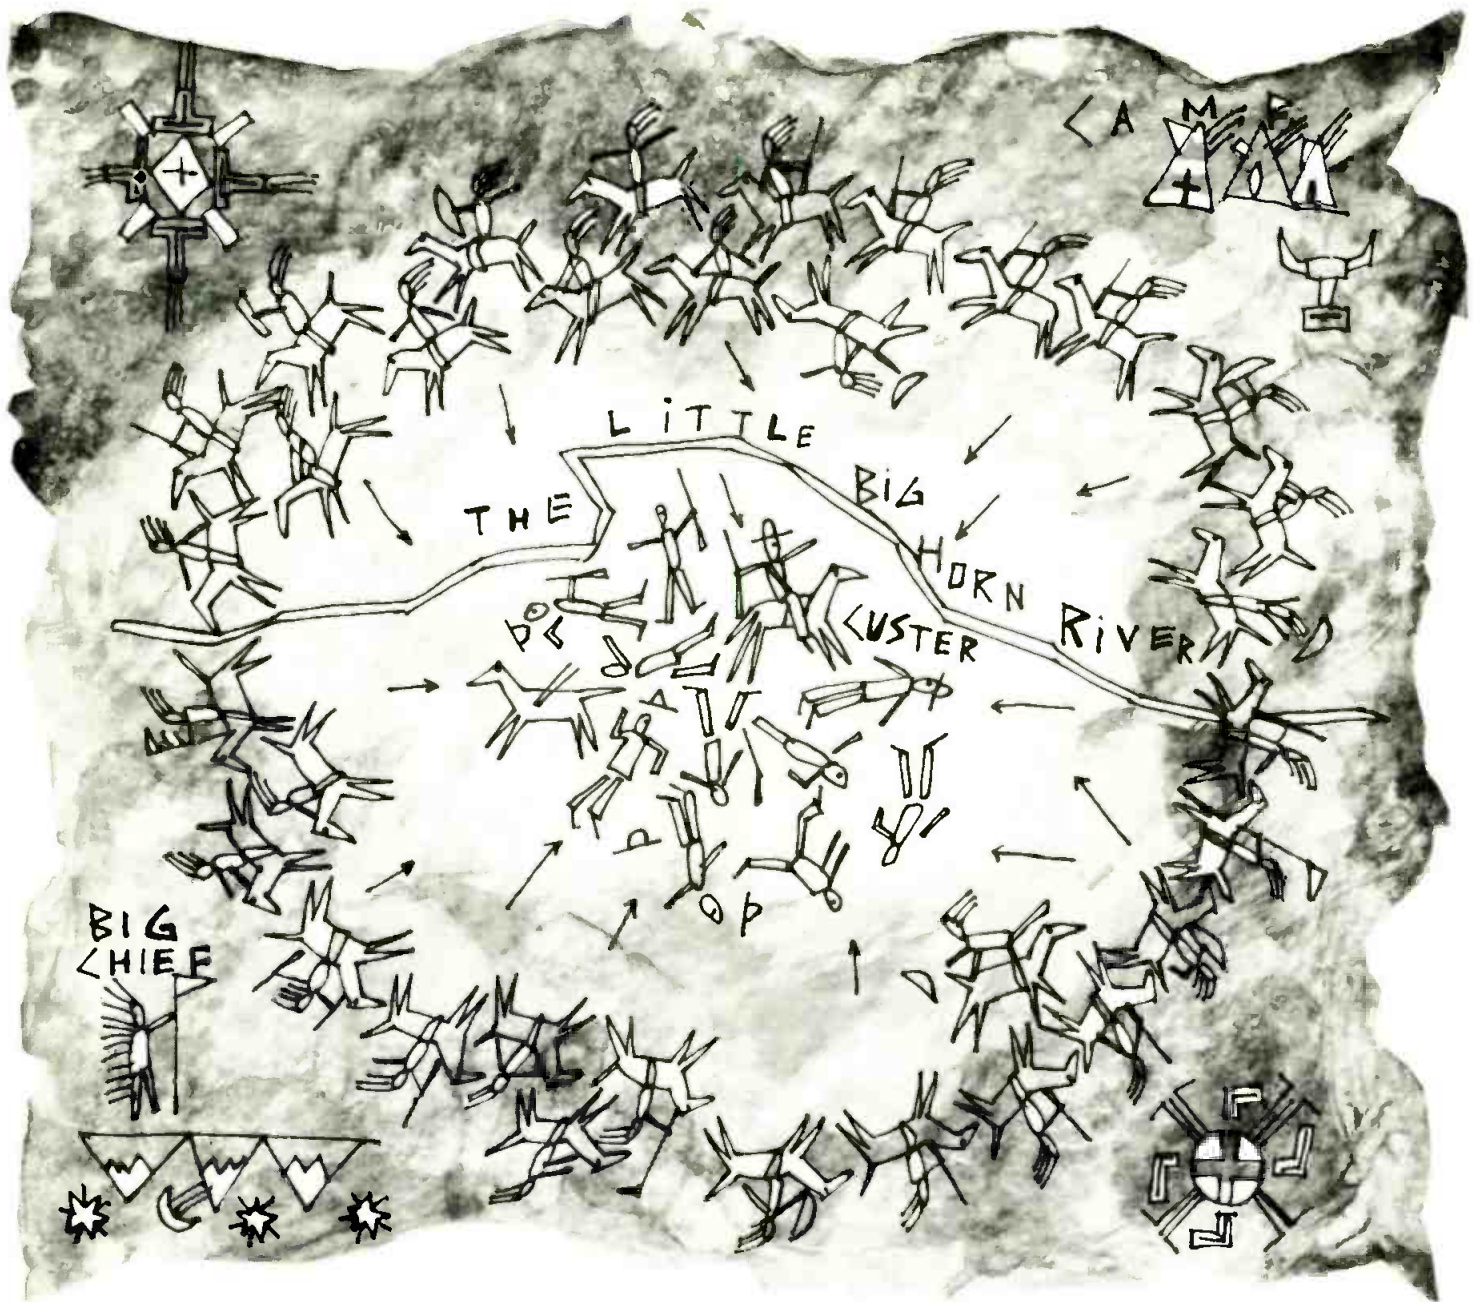 CAMP
THE LiTTLE BiG HORN RiVER
CUSTER
BIG
CHIEF